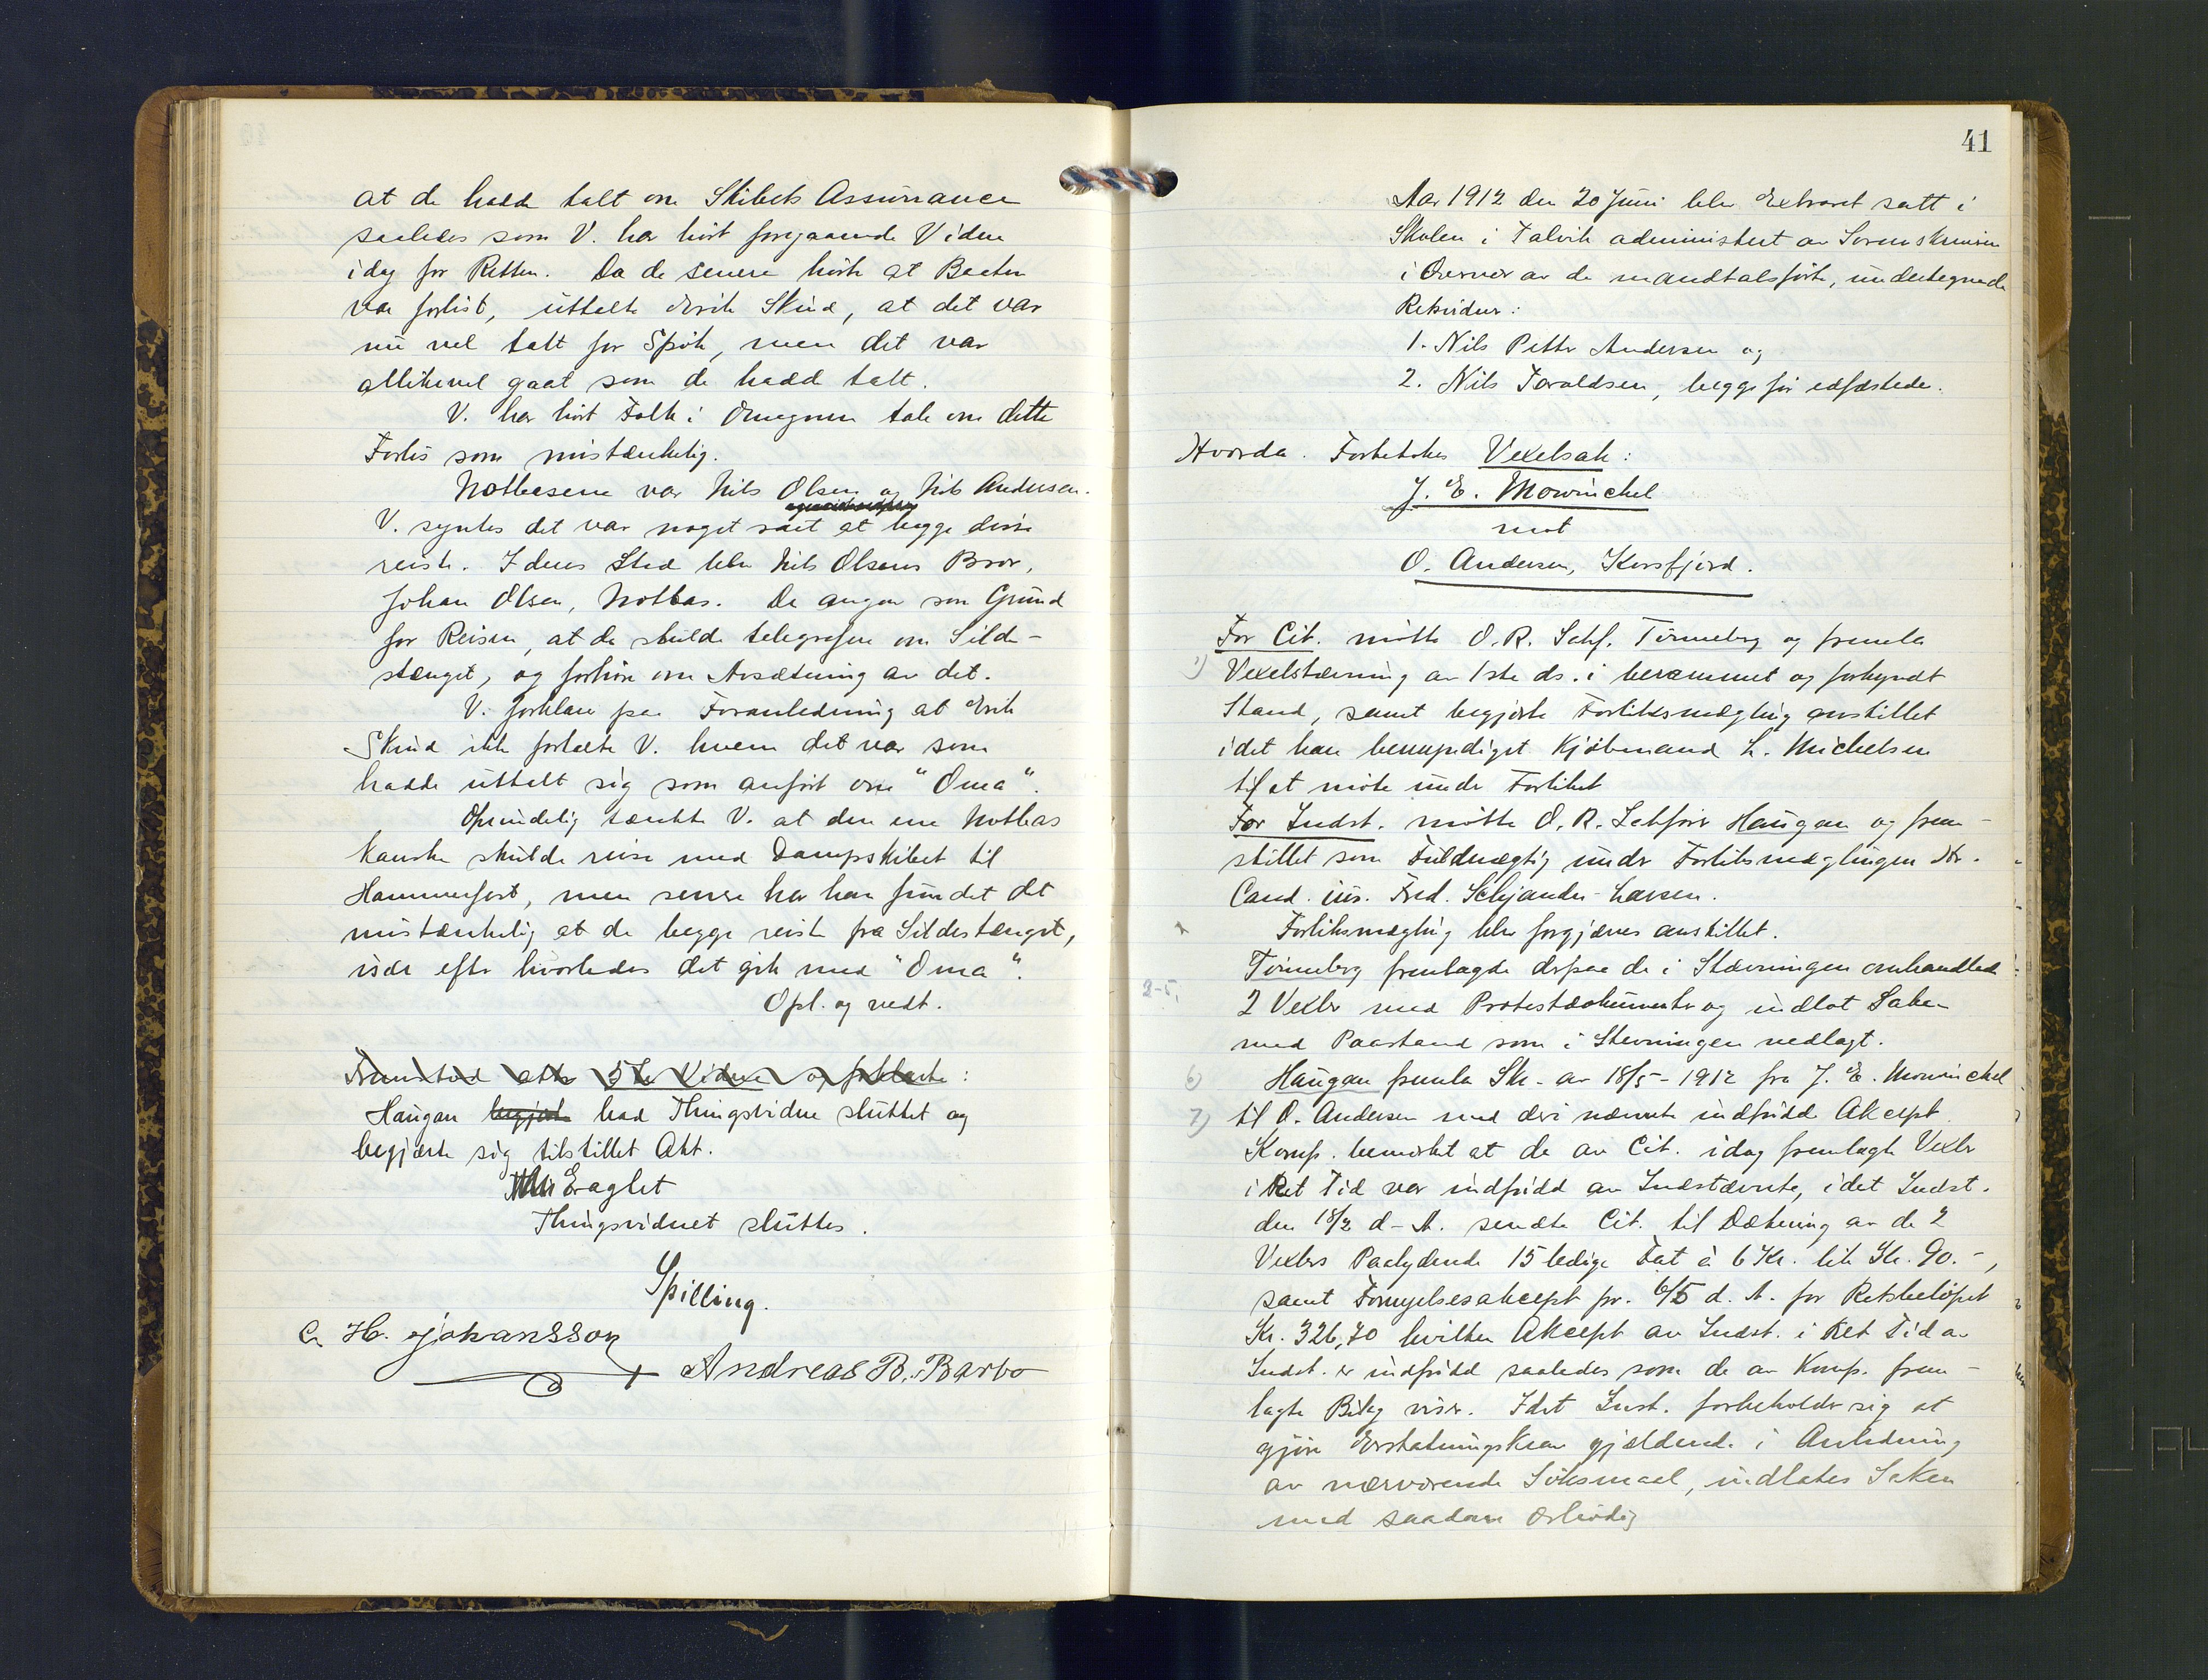 at de hadde talt om Skibets Assurance
saaledes som V. har hört foregaaende Vidne
idag for Retten. Da de senere hörte at Baaten
var forlist, uttalte Erik Skud, at det var
nu vel talt for Spök, men det var
allikevel gaat som de hadd talt.
V. har hört Folk i Omegnen tale om dette
Forlis som mistænkelig.
Notbasene var Nils Olsen og Nils Andersen.
V. syntes det var noget rart at begge disse
reiste. I deres Sted blev Nils Olsens Bror,
Johan Olsen, Notbas. De angav som Grund
for Reisen, at de skulde telegrafere om Silde-
stænget, og forhöre om Avsætning av det.
V. forklarer paa Foranledning at Erik
Skud ikke fortalte V. hvem det var som
hadde uttalt sig som anfört om "Oma".
Oprindelig tænkte V. at den ene Notbas
kanske skulde reise med Dampskibet til
Hammerfest, men senere har han fundet det
mistænkelig at de begge reiste fra Sildestænget,
især efter hvorledes det gik med "Oma".
Opl. og vedt.
Fremstod atter 5te Vidne og forklarte:
Haugan begjærte bad Thingsvidne sluttet og
begjærte sig tilstillet Akt.
Eragtet
Thingsvidnet sluttes.
Spilling.
C. H. Johansson
Andreas B. Barbo
41
Aar 1912 den 20 Juni blev Extraret satt i
Skolen i Talvik administrert av Sorenskriveren
i Overvær av de mandtalsförte, undertegnede
Retsvidner:
1. Nils Petter Andersen og
2. Nils Taraldsen, begge för edfæstede.
Hvorda. Foretokes Vexelsak:
J. E. Mowinckel
mot
O. Andersen, Korsfjord.
For Cit. mötte O. R. Sakf. Tönneberg og fremla
1) Vexelstævning av 1ste ds. i berammet og forkyndt
Stand, samt begjærte Forliksmægling anstillet
idet han bemyndiget Kjöbmand L. Michelsen
til at möte under Forliket
For Indst. mötte O. R. Sakförer Haugan og frem-
stillet som Fuldmægtig under Forliksmæglingen Hr.
Cand. jur. Fred. Schjander-Larsen.
Forliksmægling blev forgjæves anstillet.
Tönneberg fremlagde derpaa de i Stævningen omhandlede
2-5,
2 Vexler med Protestdokumenter og indlot Saken
med Paastand som i Stevningen nedlagt.
6) Haugan fremla Sk. av 18/5-1912 fra J. E. Mowinckel
7) til O. Andersen med deri nævnte indfridd Akcept
Komp. bemerket at de av Cit. idag fremlagte Vexler
i Ret Tid var indfridd av Indstævnte, idet Indst.
den 18/2 d. A. sendte Cit. til Dækning av de 2
Vexlers Paalydende 15 ledige Fat à 6 Kr. lik Kr. 90.-,
samt Fornyelsesakcept pr. 6/5 d. A. for Restbelöpet
Kr. 326,70 hvilken Akcept av Indst. i Ret Tid av
Indst. er indfridd saaledes som de av Komp. frem-
lagte Bilag viser. Idet Inst. forbeholder sig at
gjöre Erstatningskrav gjældende i Anledning
av nærværende Söksmaal, indlates Saken
med saadan Ærbödig